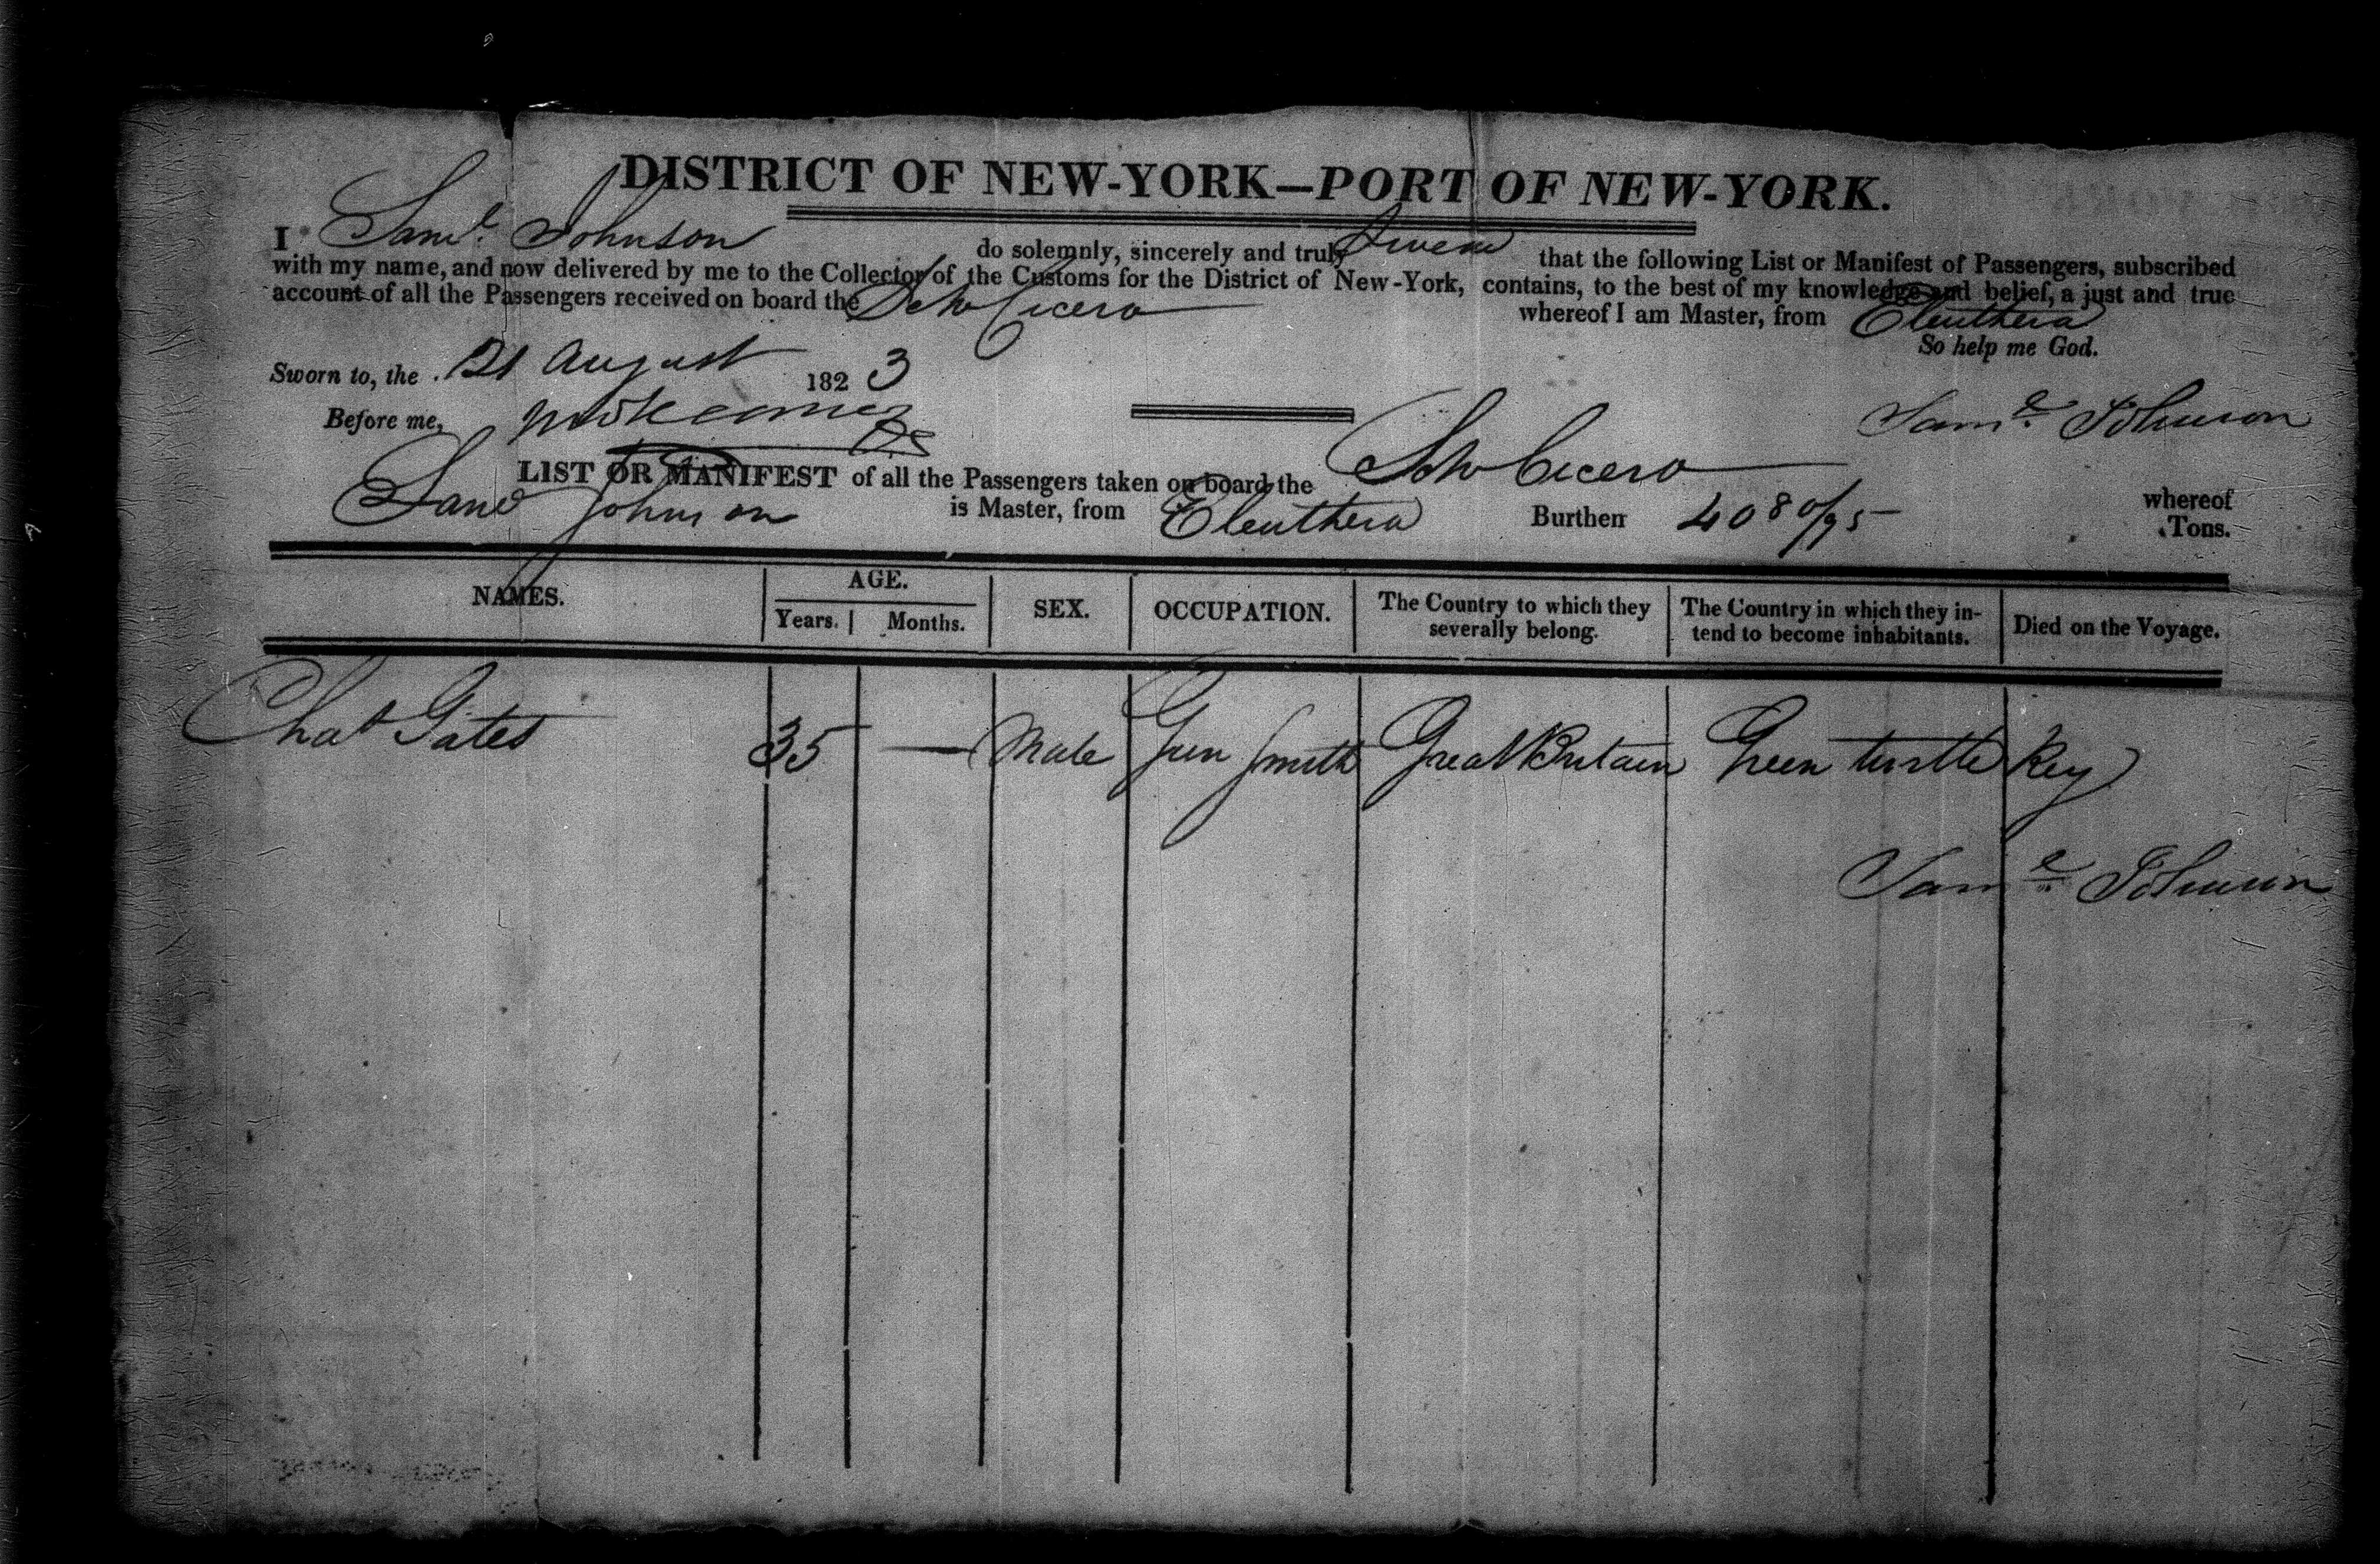 DISTRICT OF NEW-YORK—PORT OF NEW-YORK.
I Saml. Johnson do solemnly, sincerely and truly Swear that the following List or Manifest of Passengers, subscribed
with my name, and now delivered by me to the Collector of the Customs for the District of New-York, contains, to the best of my knowledge and belief, a just and true
account of all the Passengers received on board the Schr Cicero whereof I am Master, from Eleuthera
So help me God.
Sworn to, the 21 August 1823
Before me,
Saml Johnson
LIST OR MANIFEST of all the Passengers taken on board the Schr Cicero whereof
Saml Johnson is Master, from Eleuthera Burthen 40 80/95 Tons.
NAMES. AGE. Years. Months. SEX. OCCUPATION. The Country to which they severally belong. The Country in which they intend to become inhabitants. Died on the Voyage.
Chas Gates 35 — Male Gun Smith Great Britain Green turtle Key
Saml Johnson